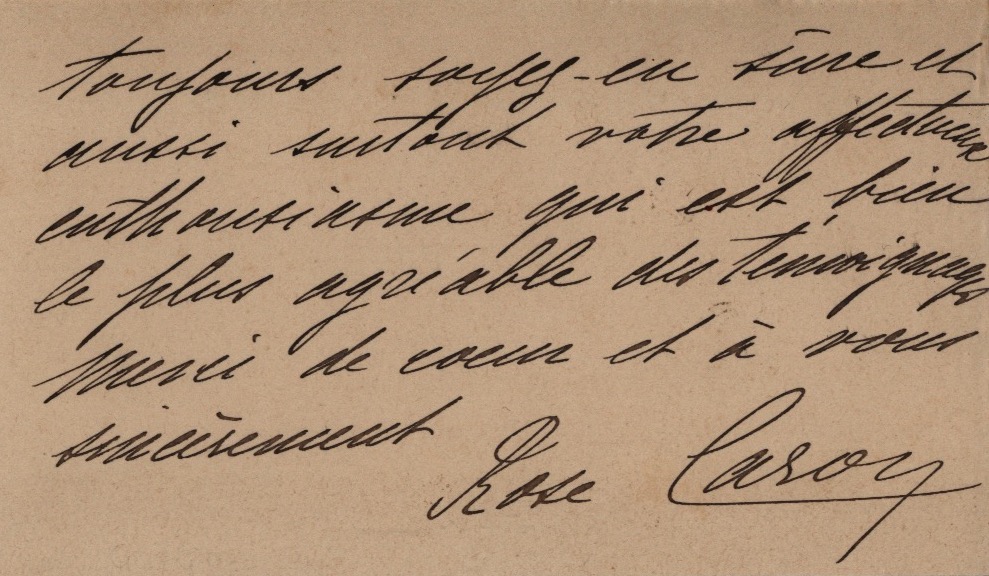 toujours soyez-en sûre et
aussi surtout votre affectueux
enthousiasme qui est bien
le plus agréable des témoignages
merci de coeur et à vous
sincèrement
Rose Caron